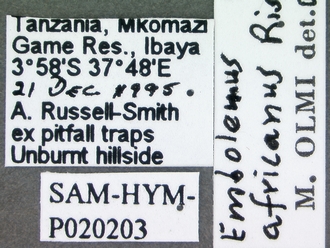 Tanzania, Mkomazi
Game Res., Ibaya
3°58'S 37°48'E
21 DEC 1995.
A. Russell-Smith
ex pitfall traps
Unburnt hillside
SAM-HYM-
P020203
Embolemus
africanus Ris
M. OLMI det.